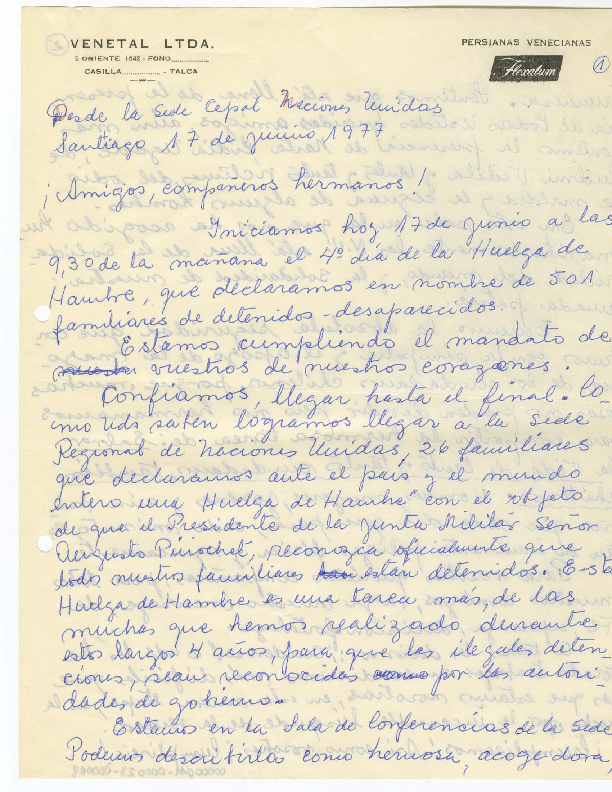 ② VENETAL LTDA.
5 ORIENTE 1642 - FONO
CASILLA - TALCA
PERSIANAS VENECIANAS
Flexalum
①
Desde la Sede Cepal Naciones Unidas
Santiago 17 de junio 1977
¡Amigos, compañeros hermanos!
Iniciamos hoy 17 de junio a las
9,30 de la mañana el 4º día de la Huelga de
Hambre, que declaramos en nombre de 501
familiares de detenidos-desaparecidos.
Estamos cumpliendo el mandato de
vuestros de nuestros corazones.
Confiamos, llegar hasta el final. Co-
mo Uds. saben logramos llegar a la Sede
Regional de Naciones Unidas, 26 familiares
que declaramos ante el país y el mundo
entero una Huelga de Hambre" con el objeto
de que el Presidente de la Junta Militar Señor
Augusto Pinochet, reconozca oficialmente que
todo nuestros familiares están detenidos. Esta
Huelga de Hambre es una tarea más, de las
muchas que hemos realizado durante
estos largos 4 años, para que las ilegales deten
ciones, sean reconocidas por las autori-
dades de gobierno.-
Estamos en la Sala de Conferencias de la Sede
Podemos describirla como hermosa, acogedora,